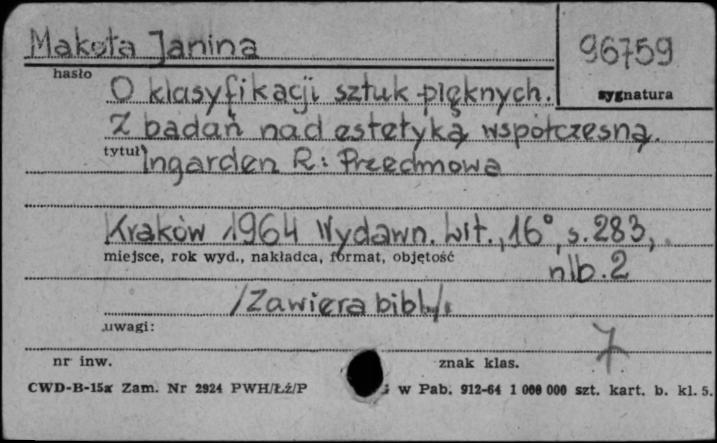 Makota Janina
96759
hasło
sygnatura
O klasyfikacji sztuk pięknych.
Z badań nad estetyką współczesną.
tytuł
Ingarden R: Przedmowa
Kraków 1964 Wydawn. Lit., 16°, s. 283,
miejsce, rok wyd., nakładca, format, objętość
nlb. 2
/Zawiera bibl./
uwagi:
7
nr inw.
znak klas.
CWD-B-15a Zam. Nr 2924 PWH/Łź/P
G w Pab. 912-64 1 000 000 szt. kart. b. kl. 5.